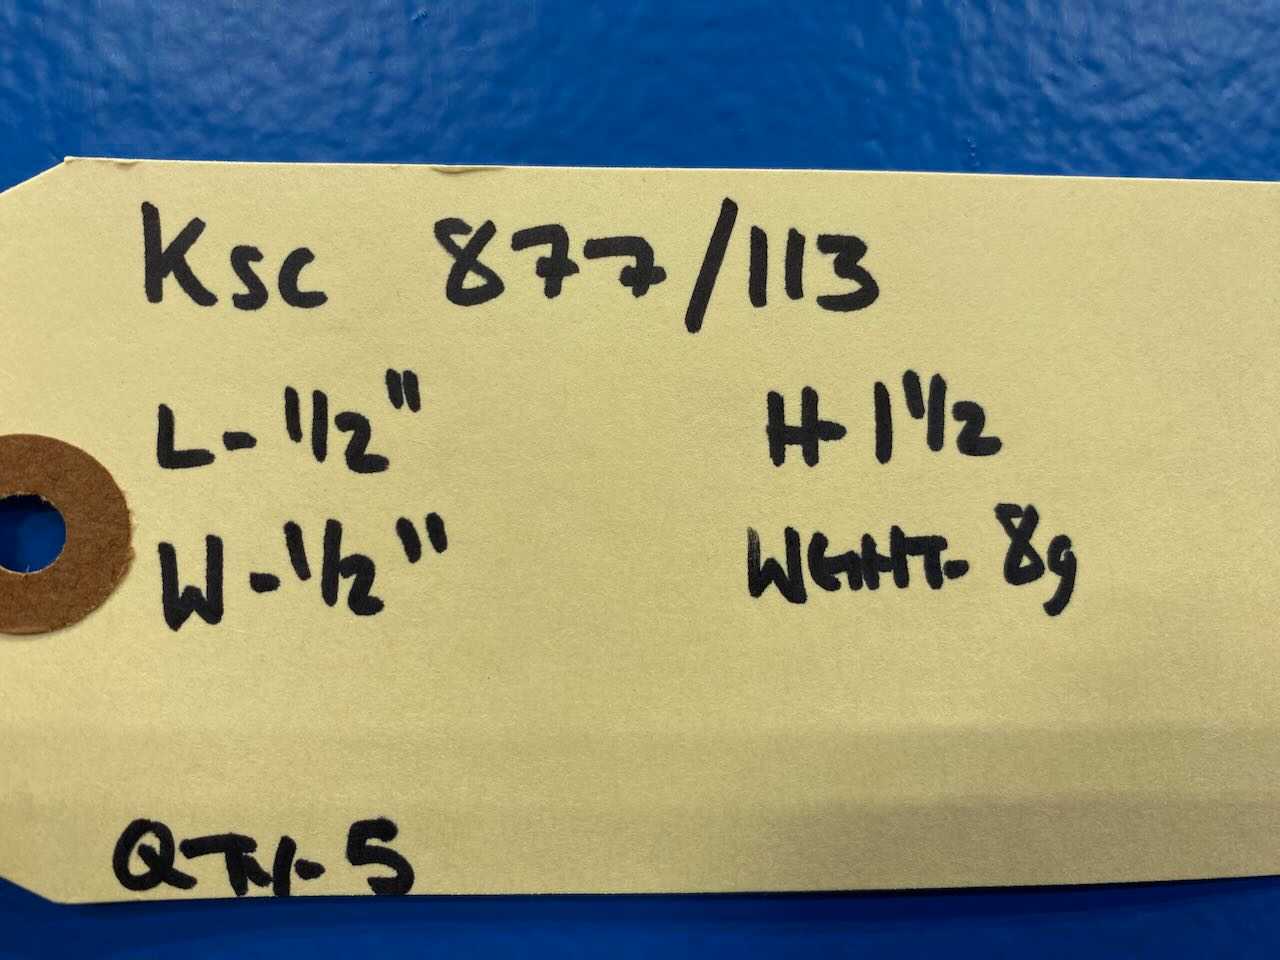 Ksc 877/113
L- 1/2" H- 1 1/2
W- 1/2" WGHT- 8g
QTY- 5